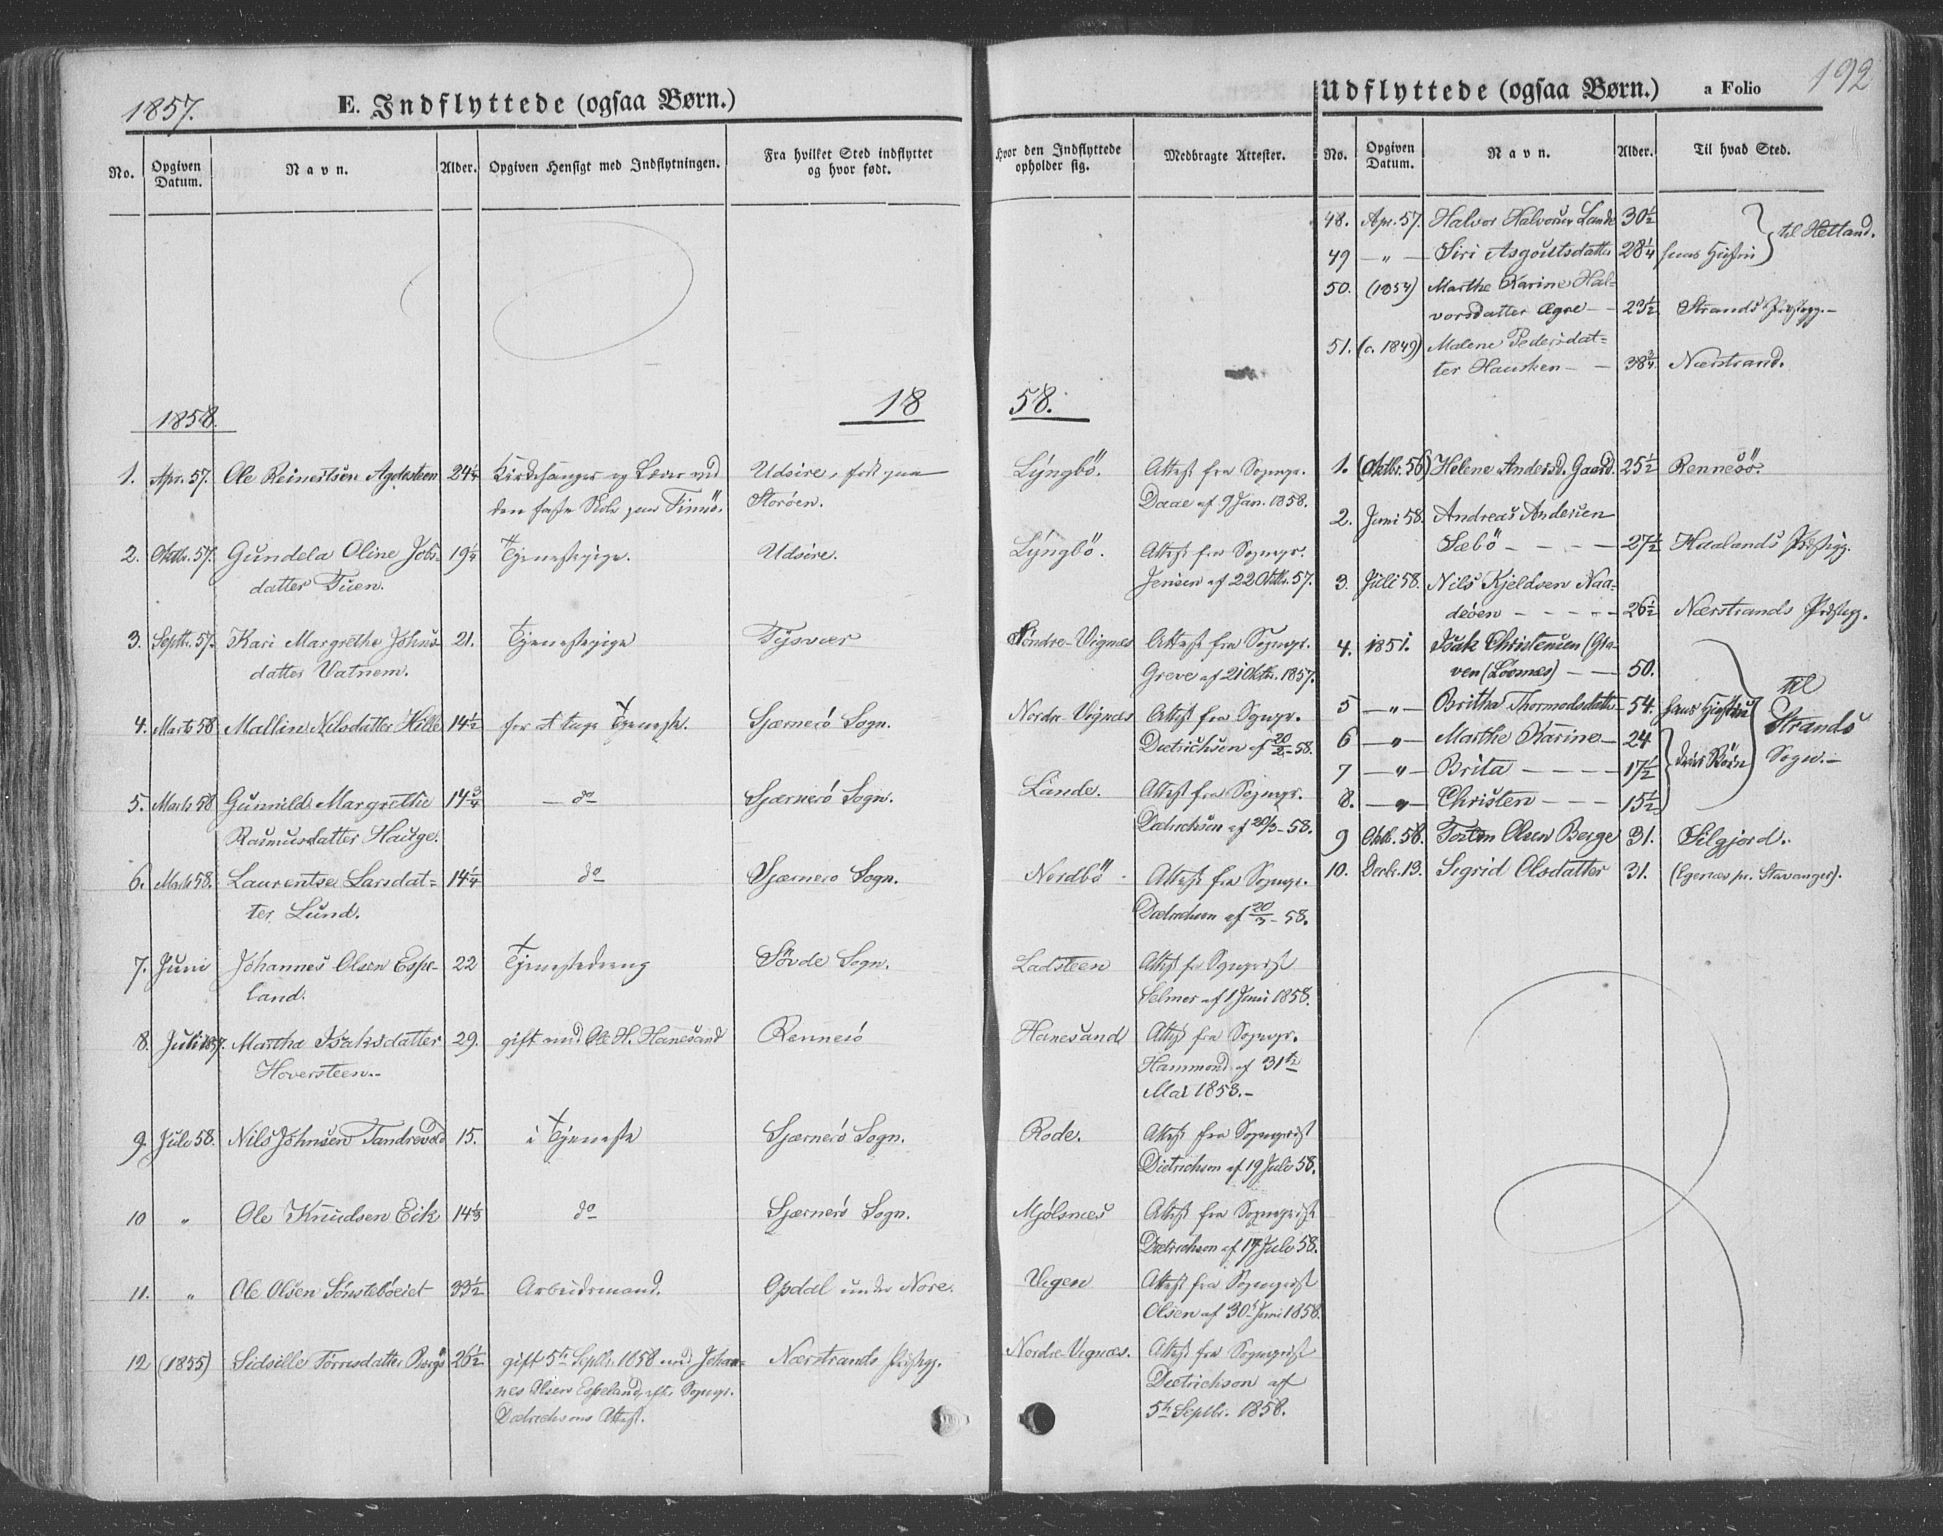 1857.
E. Indflyttede (ogsaa Børn.)
No. Opgiven Datum. Navn. Alder. Opgiven Hensigt med Indflytningen. Fra hvilket Sted indflyttet og hvor født.
Hvor den Indflyttede opholder sig. Medbragte Attester.
1858.
18 58.
1. Apr. 57. Ole Reinertsen Agdesteen 24 1/4 Kirkesanger og Lærer ved Udsire, født paa Lyngbö. Attest fra Sognepr.
den faste Skole paa Finnö. Storöen. Daae af 9 Jan. 1858.
2. Oktbr. 57. Gundela Oline Jobs- 19 1/4 Tjenestepige. Udsire. Lyngbö. Attest fra Sognepr.
datter Tuen. Jensen af 22 Oktbr. 57.
3. Septbr. 57. Kari Margrethe Johns- 21. Tjenestepige Tysvær Söndre-Vignæs Attest fra Sognepr.
datter Vatnem. Greve af 21 Oktbr. 1857.
4. Marts 58 Mallin Nilsdatter Hille 14 1/2 for at tage Tjeneste. Sjærnerö Sogn. Nordre Vignæs Attest fra Sognepr.
Dietrichsen af 20/2 - 58.
5. Marts 58 Gunnild Margrethe 14 3/4 — do Sjærnerö Sogn. Lände. Attest fra Sognepr.
Rasmusdatter Hauge. Dietrichsen af 20/3 - 58.
6. Marts 58. Laurentse Larsdat- 14 1/4 do Sjærnerö Sogn. Nordbö Attest fra Sognepr.
ter Lund. Dietrichson af 20/3 - 58.
7. Juni Johannes Olsen Espe- 22 Tjenestedreng Sövde Sogn. Ladsteen Attest fra Sogneprest
land. Selmer af 1 Juni 1858.
8. Juli 1857. Martha Isaksdatter 29. gift med Ole H. Hanesand Rennesö Hanesand Attest fra Sognepr.
Hoversteen. Hammond af 31te
Mai 1858.
9. Juli 58. Nils Johnsen Tandrevold 15. i Tjeneste Sjærnerö Sogn. Rode. Attest fra Sogneprest
Dietrichson af 19 Juli 58.
10 " Ole Knudsen Eik 14 1/3 do Sjærnerö Sogn. Mjölsnæs Attest fra Sogneprest
Dietrichson af 17 Juli 58.
11. " Ole Olsen Sönstebøeiet 33 1/2 Arbeidsmand. Opdal under Nore. Vigen Attest fra Sogneprest
Olsen af 30te Juni 1858.
12 (1855) Sidsille Torresdatter Bergö 26 1/2 gift 5te Septbr. 1858 med Johan- Nærstrands Præstegj. Nordre-Vignæs. Attest fra Sogneprest
nes Olsen Espeland, efter Sognepr. Dietrichson af
Dietrichsons Attest. 5te Septbr. 1858.
Udflyttede (ogsaa Børn.) a Folio 192
No. Opgiven Datum. Navn. Alder. Til hvad Sted.
48. Apr. 57. Halvor Halvorsen Lande 30 1/2 til Hetland.
49 — " — Siri Asgoutsdatter 28 1/4 hans Hustru
50. (1854) Marthe Karine Hal-
vorsdatter Ægre — 23 1/2 Strands Præstegj. —
51. (c. 1849) Malene Pedersdat-
ter Hausken — — 38 3/4 Nærstrand.
1. (Oktbr. 56) Helene Andersd. Gaard. 25 1/2 Rennesö.
2. Juni 58. Andreas Andersen
Sæbö — — — — 27 1/2 Haalands Præstegj.
3. Juli 58. Nils Kjeldsen Naa-
deöen — — — — 26 1/2 Nærstrands Præstegj.
4. 1851. Isak Christensen (Gra-
ven (Loomæs) — 50. til
5 — " — Britha Thormodsdatter 54. hans Hustru Strands
6 — " — Marthe Karine — 24 deres Börn Sogn. —
7 — " — Brita — — — — 17 1/2
8. — " — Christen — — — 15 1/2
9 Oktb. 58. Torsten Olsen Berge 31. Silgjord.
10. Decbr. 13. Sigrid Olsdatter 31. (Egenæs pr. Stavanger).